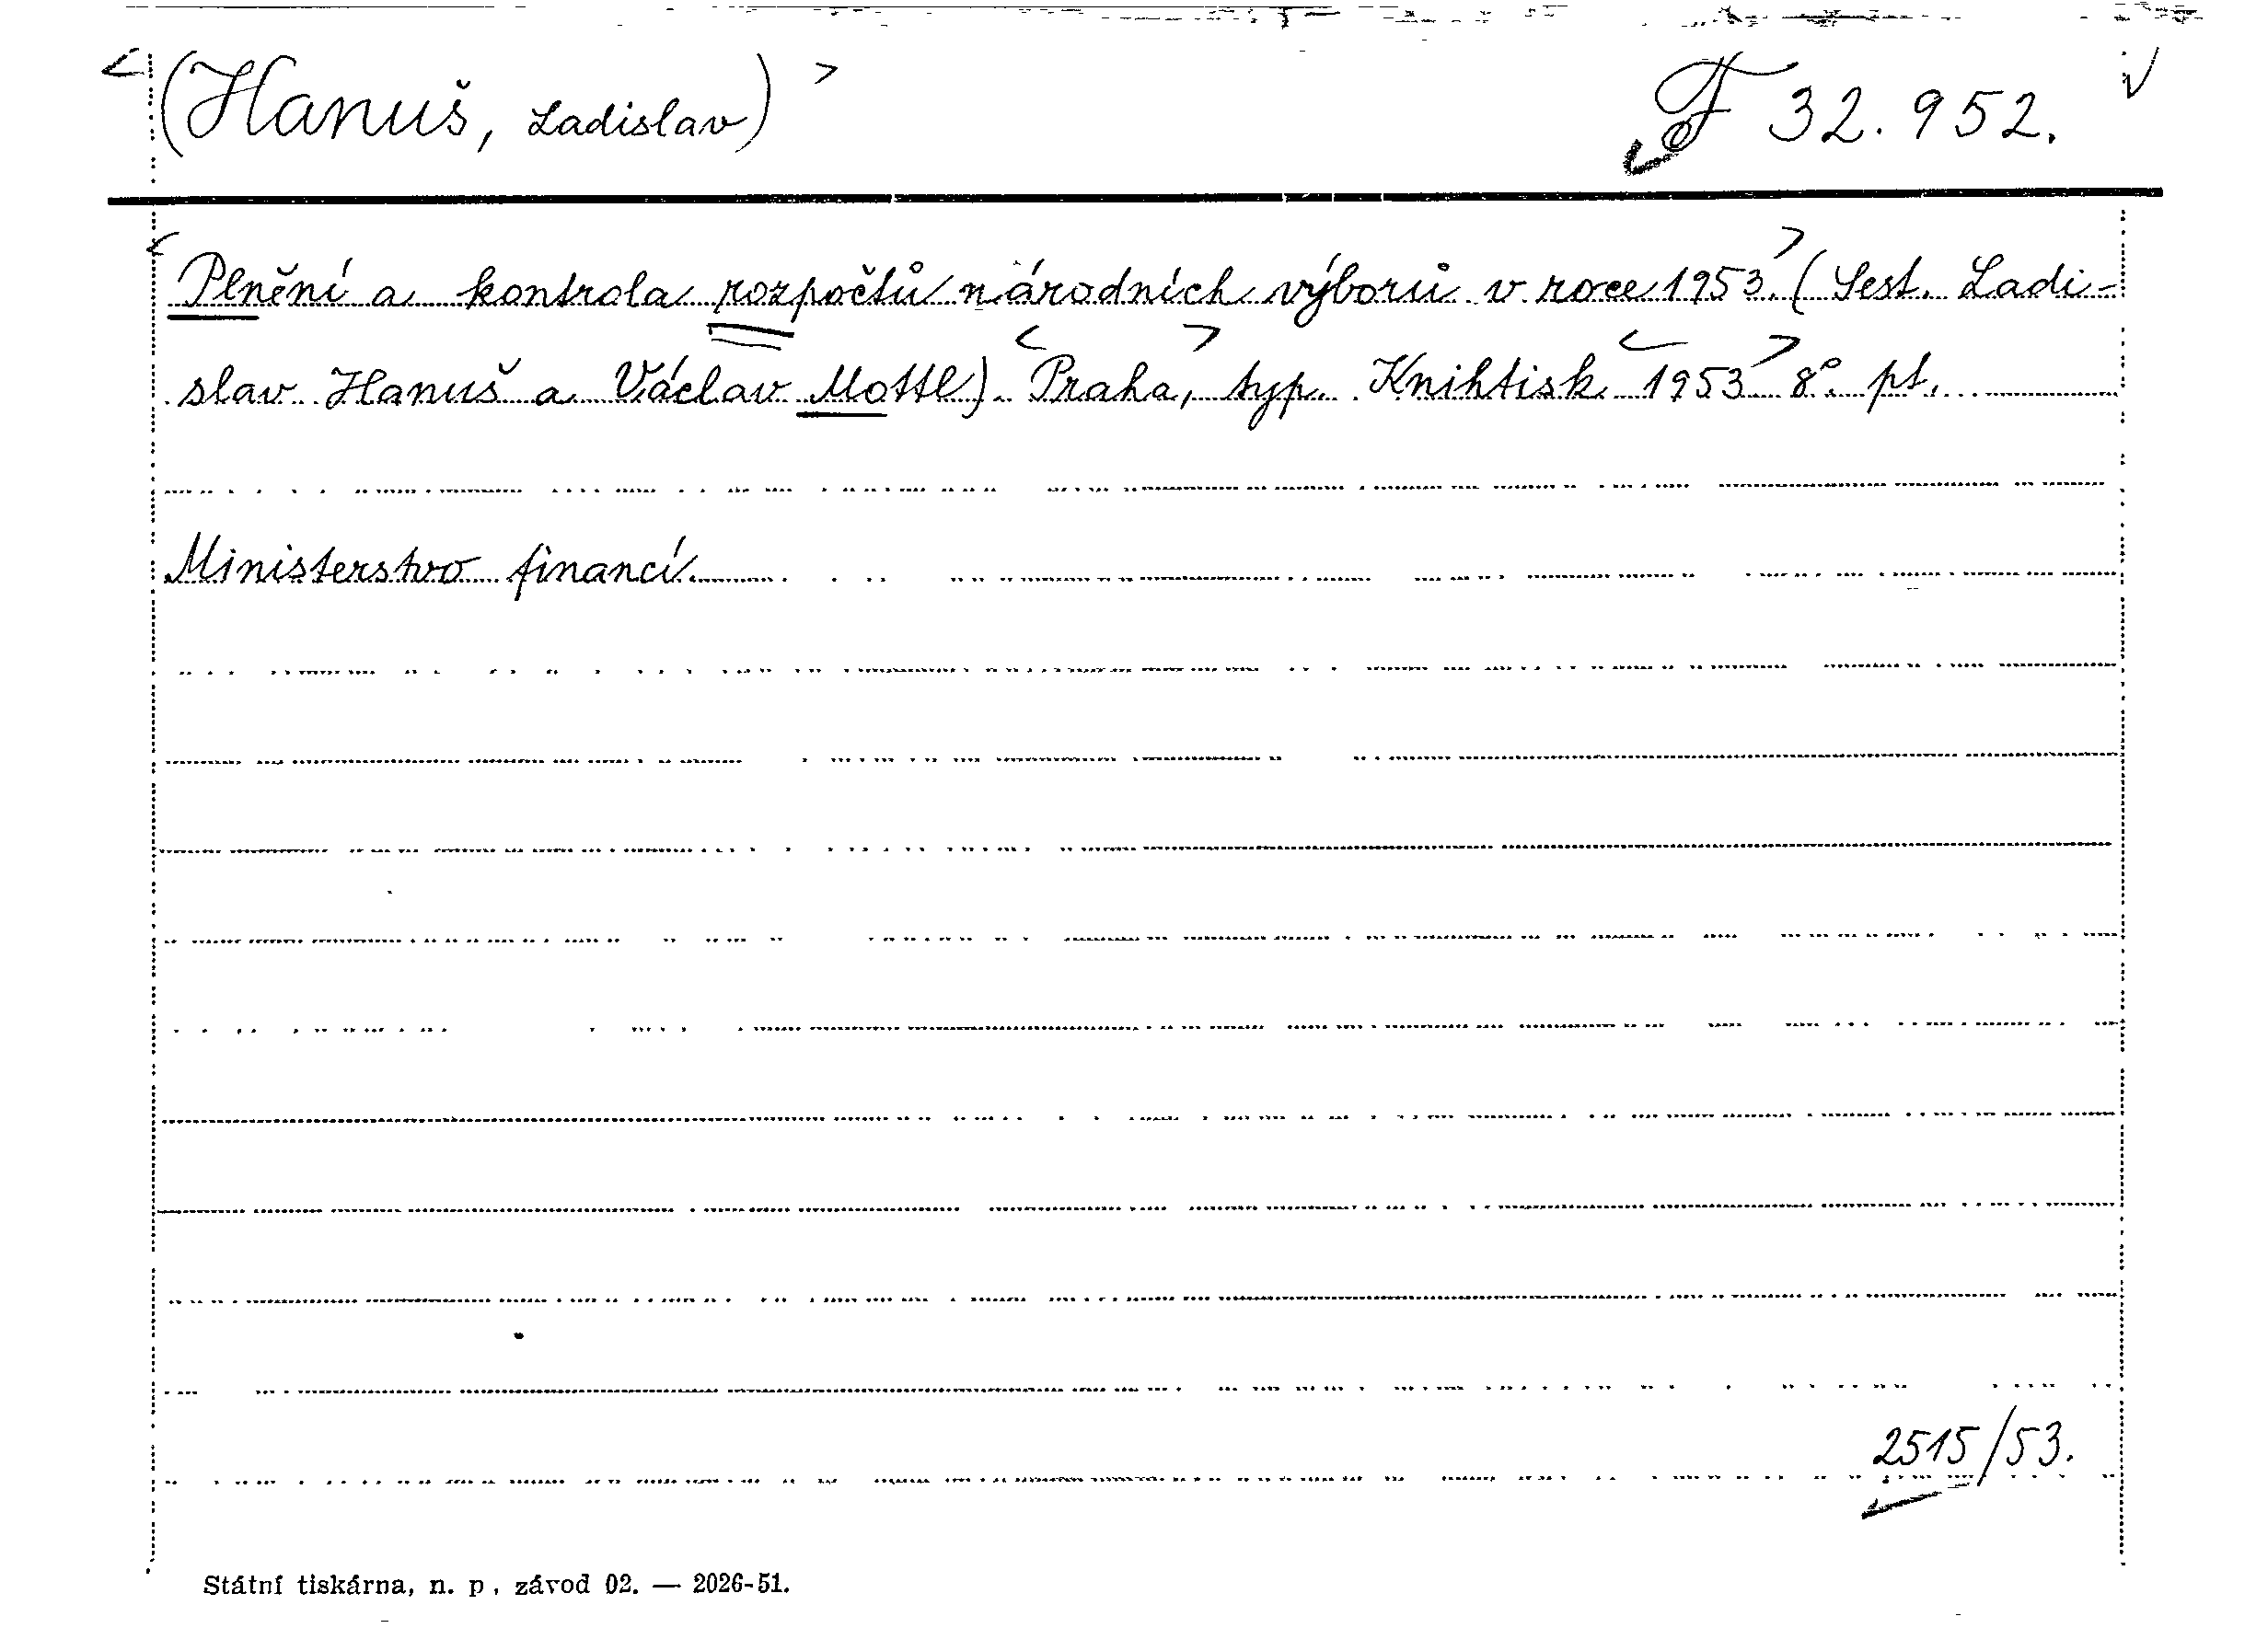 (Hanuš, Ladislav) F 32.952.
Plnění a kontrola rozpočtů národních výborů v roce 1953. (Sest. Ladi-
slav Hanuš a Václav Mottl). Praha, typ. Knihtisk 1953 8°. pt.
Ministerstvo financí.
2515/53.
Státní tiskárna, n. p. závod 02. — 2026-51.